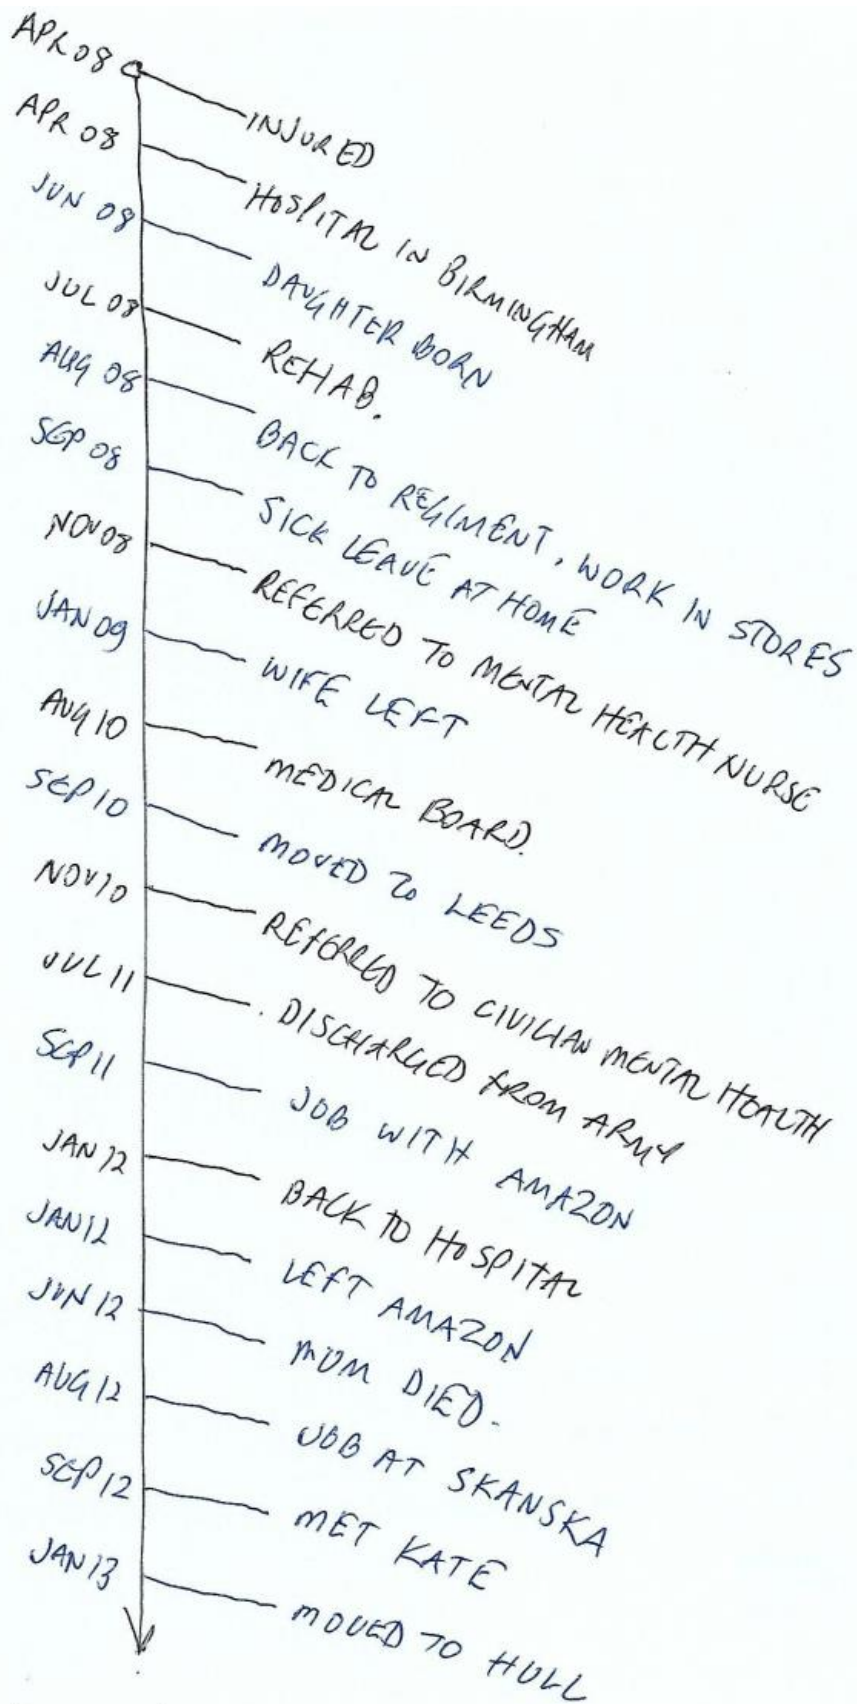 APR 08 INJURED
APR 08 HOSPITAL IN BIRMINGHAM
JUN 08 DAUGHTER BORN
JUL 08 REHAB.
AUG 08 BACK TO REGIMENT, WORK IN STORES
SEP 08 SICK LEAVE AT HOME
NOV 08 REFERRED TO MENTAL HEALTH NURSE
JAN 09 WIFE LEFT
AUG 10 MEDICAL BOARD.
SEP 10 MOVED TO LEEDS
NOV 10 REFERRED TO CIVILIAN MENTAL HEALTH
JUL 11 DISCHARGED FROM ARMY
SEP 11 JOB WITH AMAZON
JAN 12 BACK TO HOSPITAL
JAN 12 LEFT AMAZON
JUN 12 MUM DIED.
AUG 12 JOB AT SKANSKA
SEP 12 MET KATE
JAN 13 MOVED TO HULL